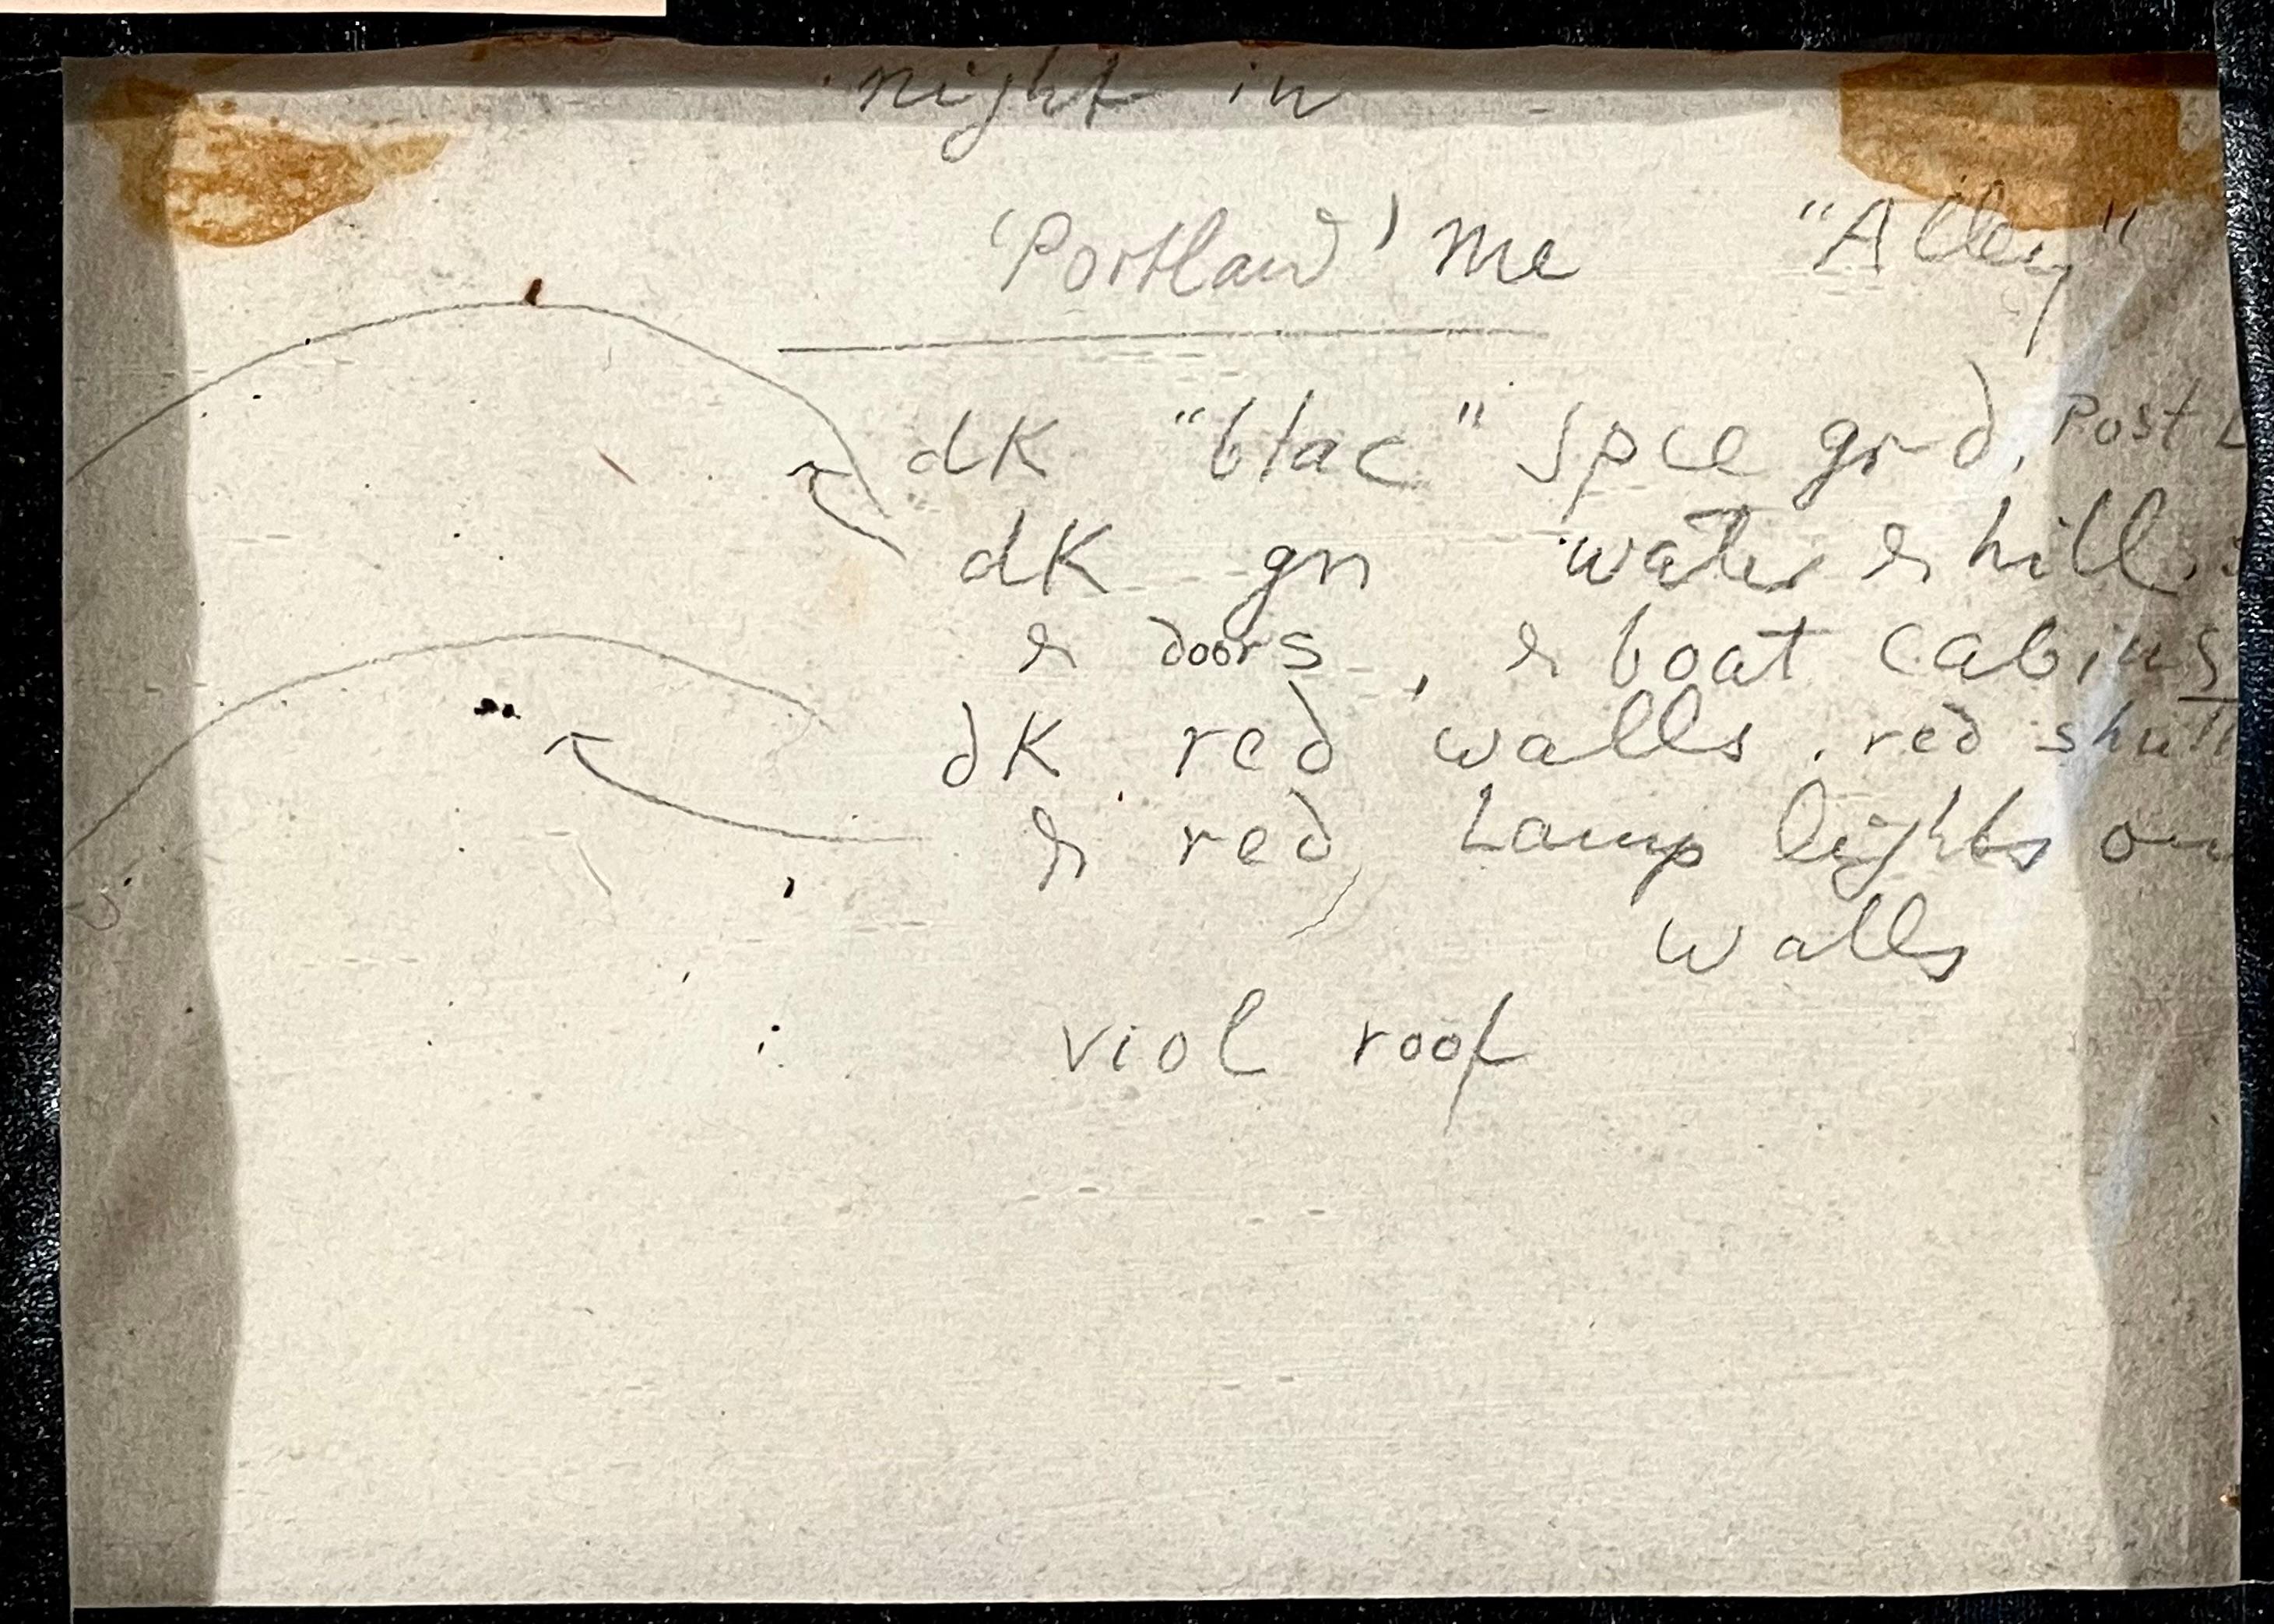 night in
'Portland' me "Alley"
dK "blac" spce grd, Post
dK gn water & hills
& doors, & boat cabins
dK red walls. red
& red Lamp lights on
walls
viol roof